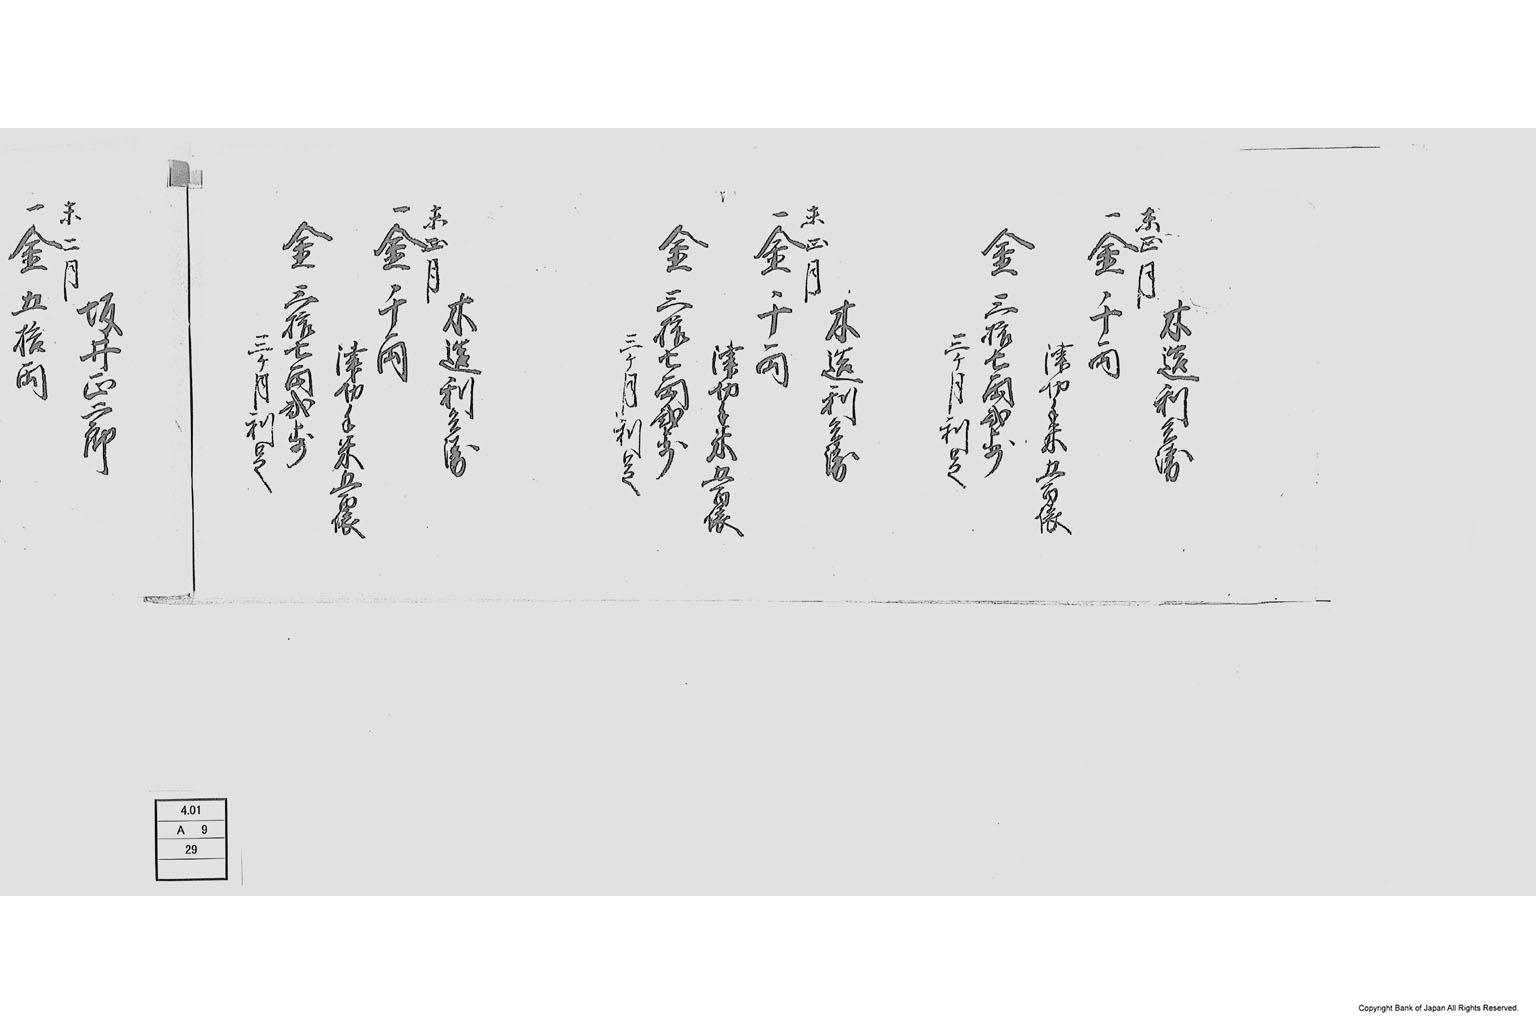 未正月
木造利兵衛
一金千両
津切手米五百俵
金三拾七両弐歩
三ケ月利足
未正月
木造利兵衛
一金千両
津切手米五百俵
金三拾七両弐歩
三ケ月利足
未正月
木造利兵衛
一金千両
津切手米五百俵
金三拾七両弐歩
三ケ月利足
未二月
坂井正二郎
一金五拾両
4.01
A 9
29
Copyright Bank of Japan All Rights Reserved.